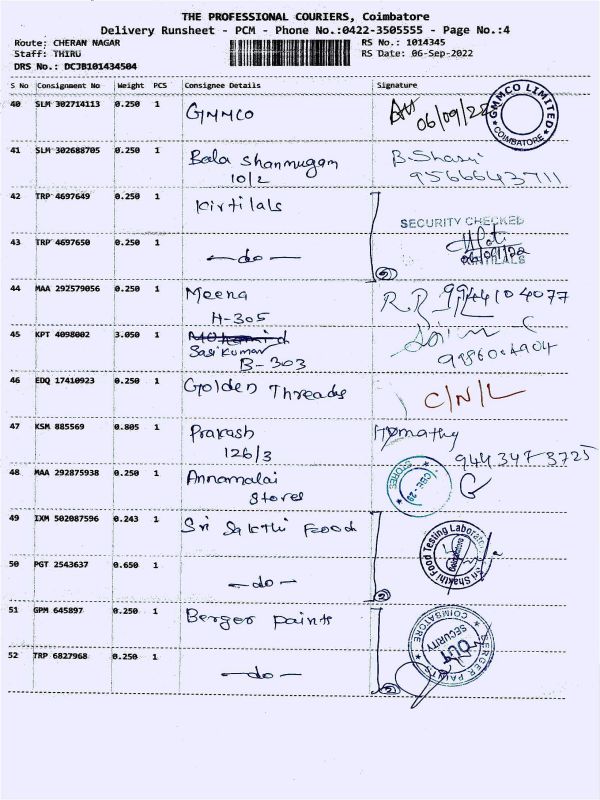 THE PROFESSIONAL COURIERS, Coimbatore
Delivery Runsheet - PCM - Phone No.:0422-3505555 - Page No.:4
Route: CHERAN NAGAR
RS No.: 1014345
Staff: THIRU
RS Date: 06-Sep-2022
DRS No.: DCJB101434504
S No Consignment No Weight PCS Consignee Details Signature
40 SLM 302714113 0.250 1 GMMCO 06/09/22
GMMCO LIMITED COIMBATORE
41 SLM 302688705 0.250 1 Bala Shanmugam
10/2
9566643711
42 TRP 4697649 0.250 1 Kirtilals
SECURITY CHECKED
43 TRP 4697650 0.250 1 -do-
5
44 MAA 292579056 0.250 1 Meena
H-305
9944104077
45 KPT 4098002 3.050 1
Sasikumar
B-303
46 EDQ 17410923 0.250 1 Golden Threads C/N/L
47 KSM 885569 0.805 1 Prakash Hymathy
126/3
944 347 3725
48 MAA 292875938 0.250 1 Annamalai
Stores
STORES CBE - 29
49 IXM 502087596 0.243 1 Sri Sakthi Food
Sri Shakthi Food Testing Laboratory
50 PGT 2543637 0.650 1 -do-
2
51 GPM 645897 0.250 1 Berger Paints
BERGER PAINTS COIMBATORE
SECURITY
OUT
52 TRP 6827968 0.250 1 -do-
2